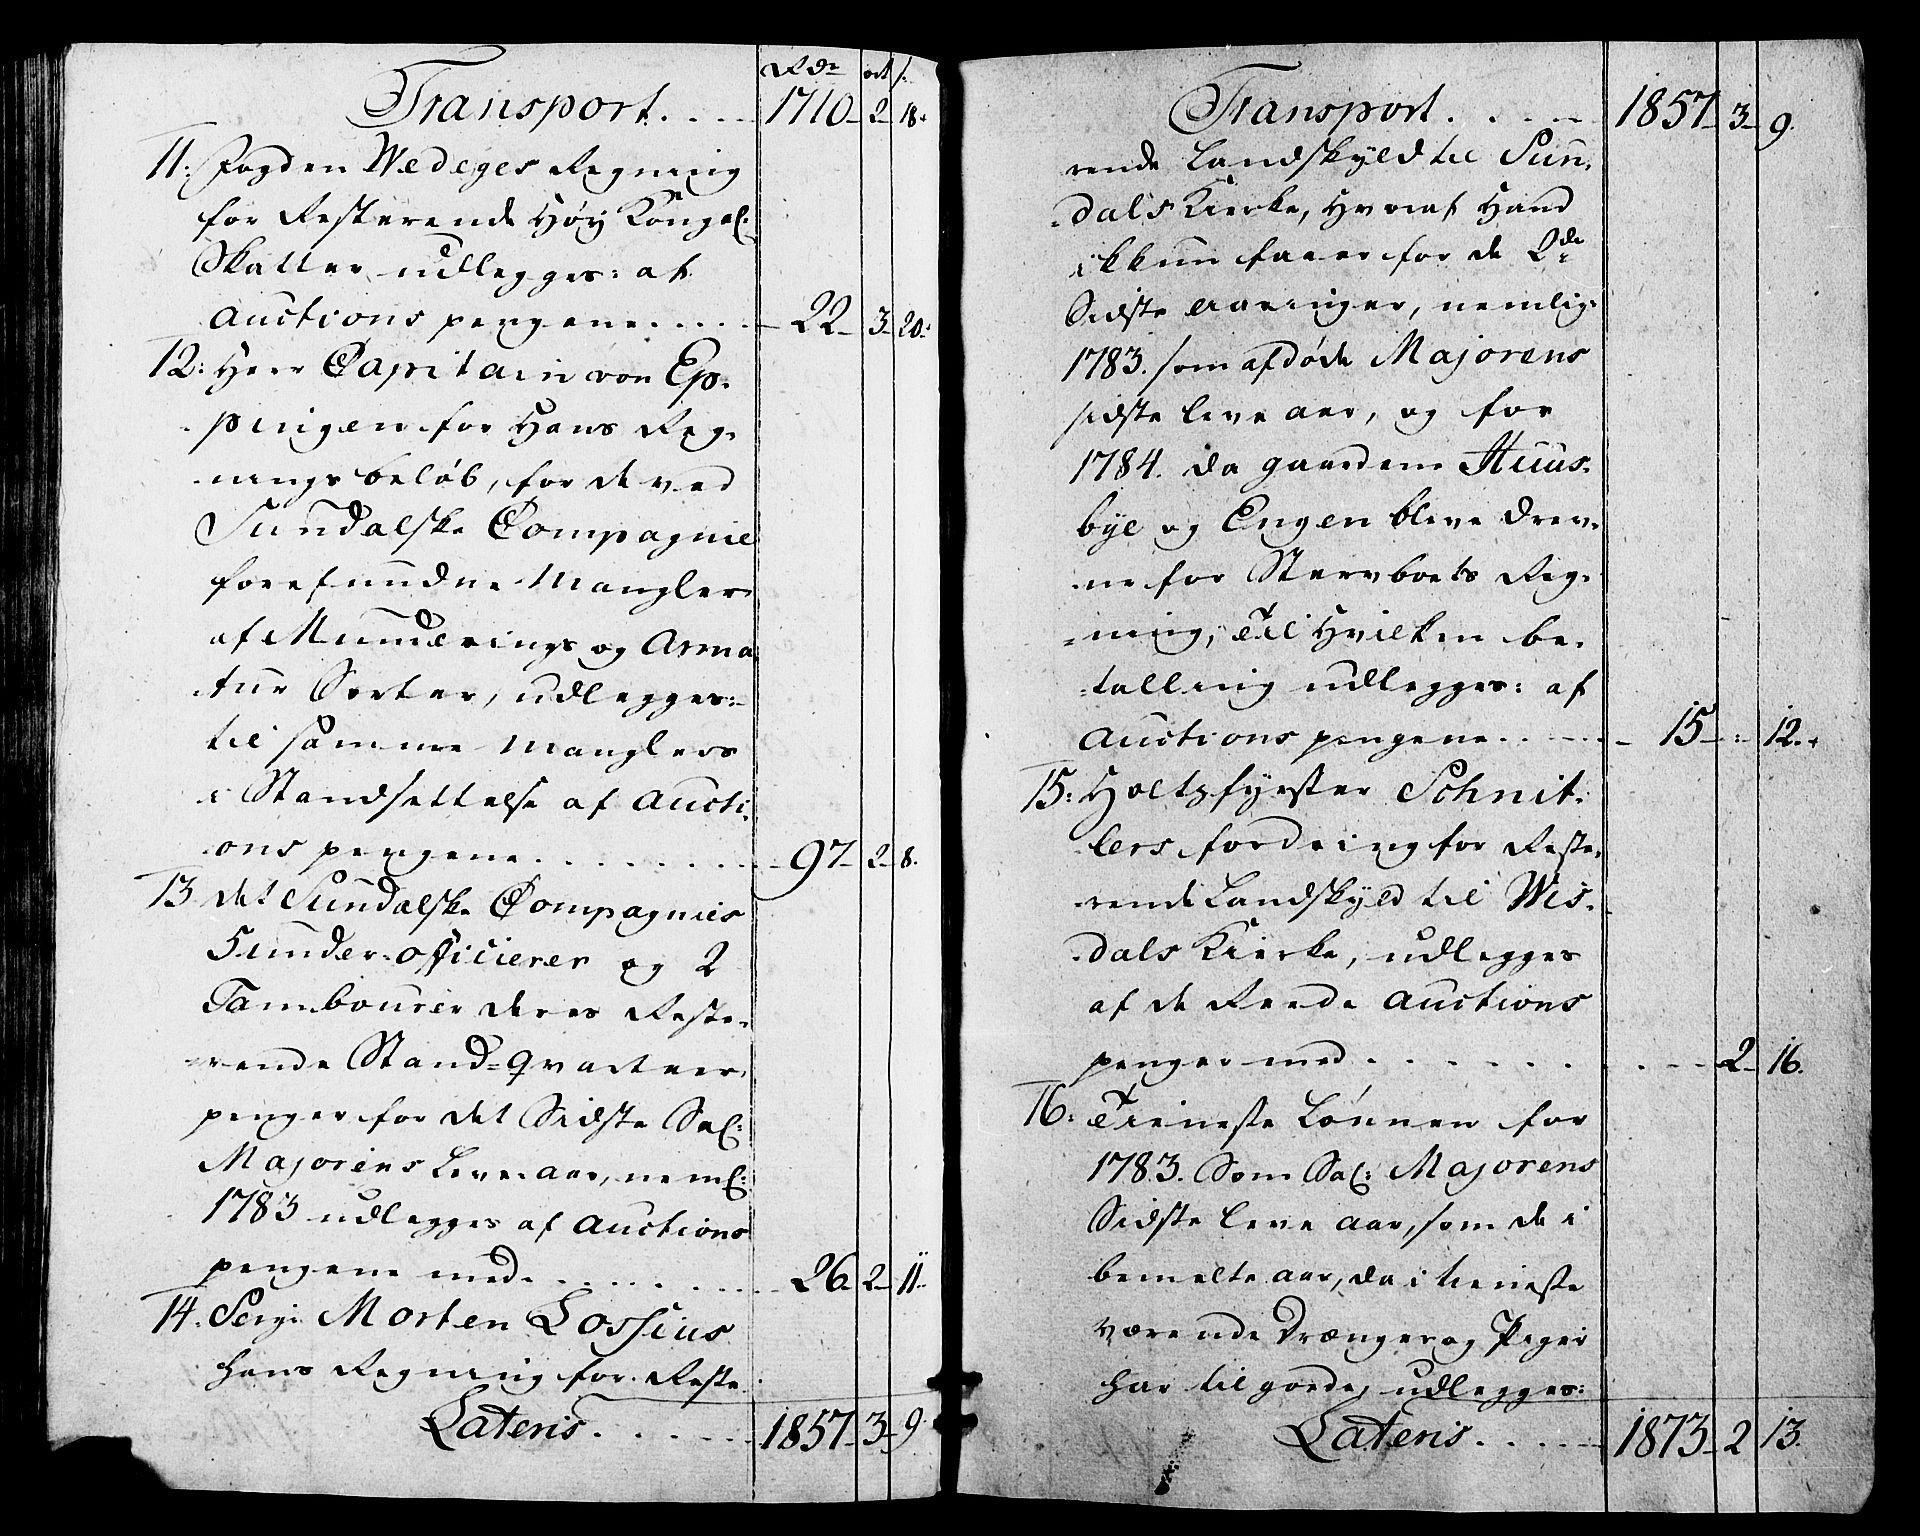 Rdr ort s.
Transport. . . . 1710 - 2 - 18.
11: Fogden Wedeges Regning
for Resterende Høy Kongel:
Skatter udlegges: af
Auctions pengene. . . . . 22 - 3 - 20.
12: Herr Capitain von Ep-
-pingen for Hans Reg-
-nings beløb, for de ved
Sundalske Compagnie
forefundne Mangler
af Munderings og Arma
-tur Sorter, udlegges:
til samme Manglers
i Standsettelse af Aucti-
-ons pengene. . . . . . . . . 97 - 2 - 8.
13 det Sundalske Compagnies
5 under-officierer og 2
Tambourer deres Reste-
-rende Stand-Qvarteer-
penger for det Sidste Sal:
Majorens Leve aar, neml:
1783 udlegges af Auctions
pengene med. . . . . . . 26 2 - 11.
14. Sergi Morten Lossius
hans Regning for Reste-
Lateris. . . . . 1857 - 3 - 9.
Transport. . . . . 1857 - 3 - 9.
rende Landskyld til Sun-
-dals Kierke, Hvoraf Hand
ikkun faaer for de 2de
Sidste Aaringer, nemlig:
1783. som afdøde Majorens
sidste leve aar, og for
1784. da gaardene Huus-
bye og Engen bleve Drev-
-ne for Stervboets Reg-
-ning, Til Hvilken be-
-talling udlegges: af
Auctions pengene. . . . . - 15 - : - 12.
15: Holtzførster Schnit-
-lers fordring for Reste-
-rende Landskyld til Wis-
-dals Kierke, udlegges
af de Reede Auctions
penger med . . . . . . . . . 2 - 16.
16: Tieneste Lønnen for
1783. Som Sal: Majorens
Sidste leve aar, som de i
bemelte aar, da i tieneste
værende Drænger og Piger
har til gode, udlegges:
Lateris. . . . . 1873 - 2 13.